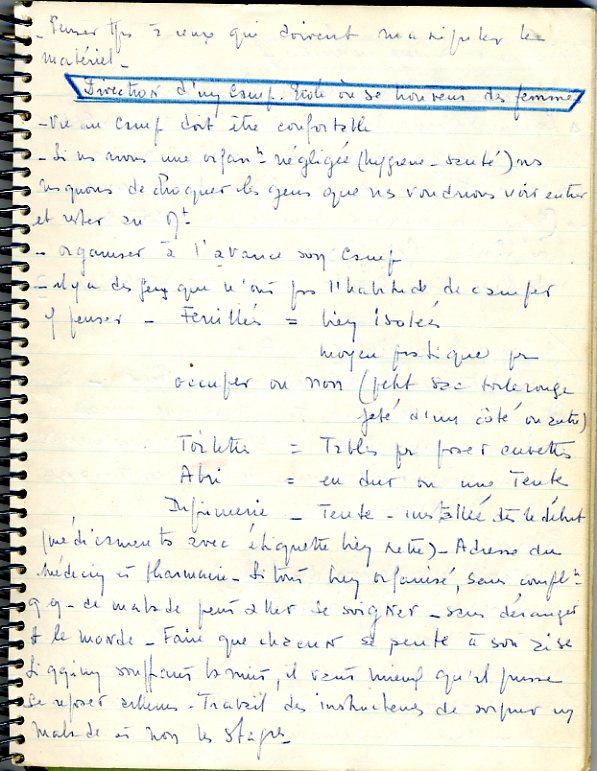 - Penser tjs à ceux qui doivent manipuler le
matériel -
Direction d'un Camp. Ecole où se trouvent des femmes
- Vie au camp doit être confortable
- Si ns avons une organ on négligée (hygiène - santé) ns
risquons de choquer les gens que ns voudrions voir entrer
et rester au Mt
- organiser à l'avance son Camp
- il y a des gens qui n'ont pas l'habitude de camper
y penser - Feuillées = bien isolées
moyen pratique pr
occuper ou non (petit sac toile rouge
jeté d'un côté ou autre)
Toilettes = Tables pr poser cuvettes
Abri = en dur ou une Tente
Infirmerie - Tente - installée dès le début
(médicaments avec étiquette bien nette) - Adresse du
médecin et Pharmacie - Si tout bien organisé, sans compl on
qq - de malade peut aller se soigner - sans déranger
tt le monde - Faire que chacun se sente à son aise
Si qqun souffrant la nuit, il vaut mieux qu'il puisse
se reposer ailleurs - Travail des instructeurs de soigner un
malade et non les Stagres -